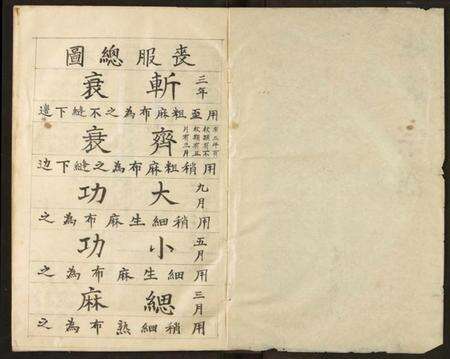 喪服總圖
三年 斬衰
用至粗麻布為之不縫下邊
有三年有
杖期有不
杖期有五
月有三月
齊衰
用稍粗麻布為之縫下边
九月 大功
用稍細生麻布為之
五月 小功
用細生麻布為之
三月 緦麻
用稍細熟布為之